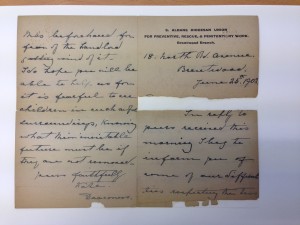 S. ALBANS DIOCESAN UNION
FOR PREVENTIVE, RESCUE, & PENITENTIARY WORK.
Brentwood Branch.
18. North Rd. Avenue
Brentwood,
June 26th 190
In reply to
yours received this
morning I beg to
inform you
of our
this respecting the

beforehand for
fear of the landlord
getting wind of it.
I do hope you will be
able to help us for
it is fearful to see
children in such awful
surroundings, knowing
what their inevitable
future must be if
they are not removed.
yours faithfully
Deaconess.